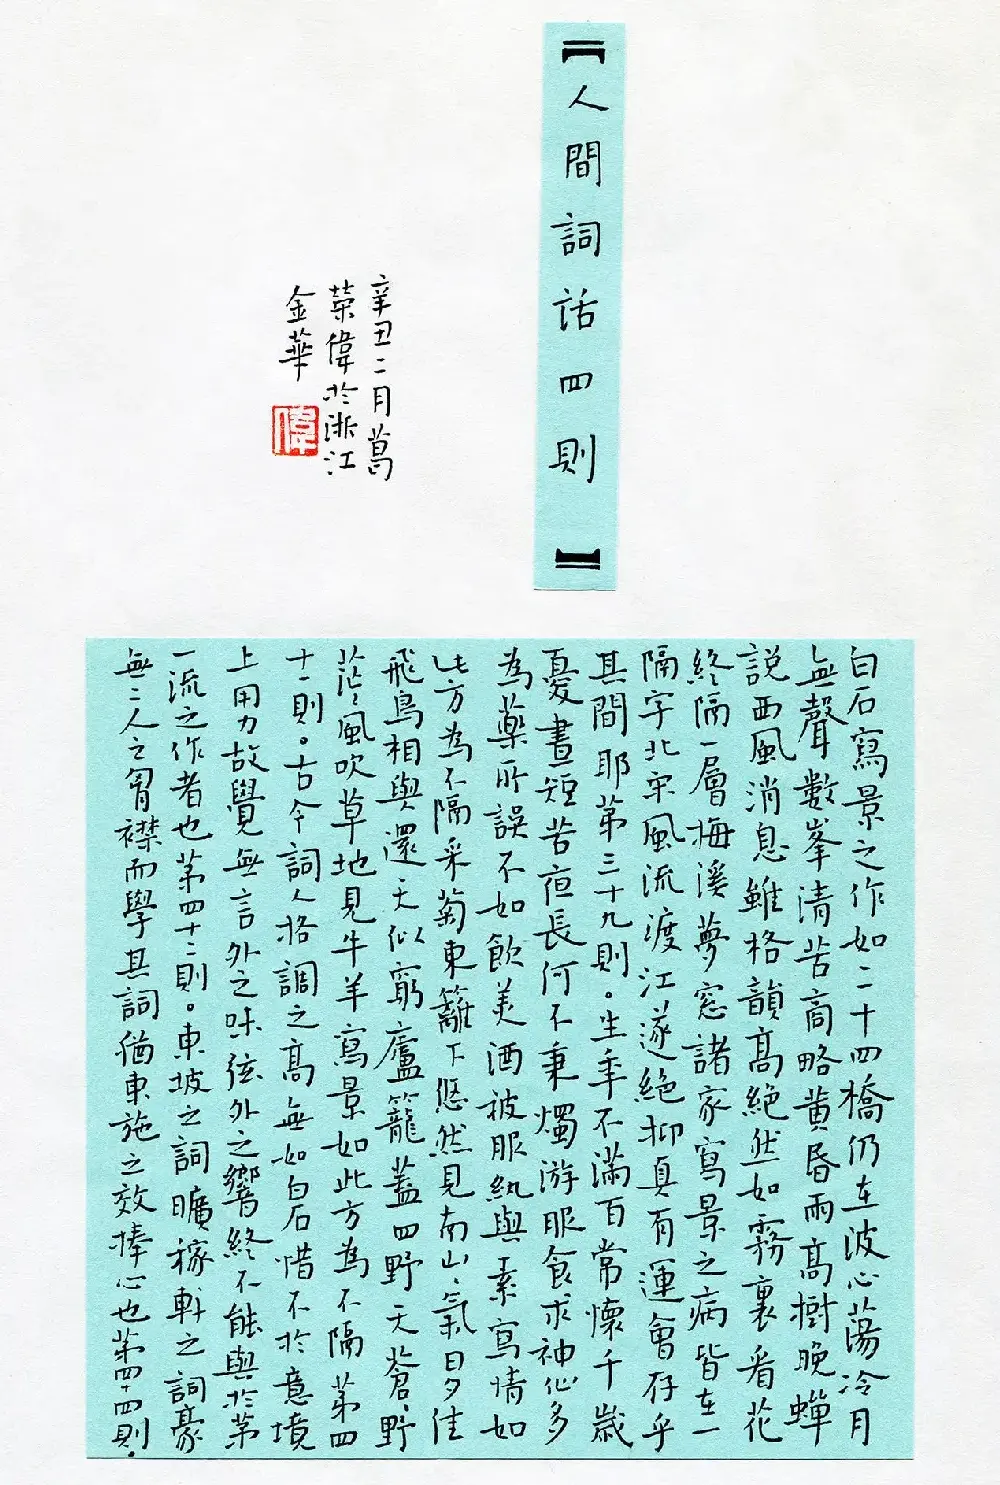 【人間詞话四則】
辛丑二月葛
荣偉於浙江
金華
偉
白石寫景之作如二十四橋仍在波心蕩冷月
無聲數峯清苦商略黄昏雨高樹晚蟬
説西風消息雖格韻高絶然如霧裏看花
終隔一層梅溪夢窓諸家寫景之病皆在一
隔字北宋風流渡江遂絶抑真有運會存乎
其間耶第三十九則。生年不滿百常懷千歲
憂晝短苦夜長何不秉燭游服食求神仙多
為藥所誤不如飲美酒被服紈與素寫情如
此方為不隔采菊東籬下悠然見南山、氣日夕佳
飛鳥相與還天似窮廬籠蓋四野天蒼、野
茫、風吹草地見牛羊寫景如此方為不隔第四
十一則。古今詞人格調之高無如白石惜不於意境
上用力故覺無言外之味弦外之響終不能與於第
一流之作者也第四十二則。東坡之詞曠稼軒之詞豪
無二人之胷襟而學其詞猶東施之效捧心也第四十四則.